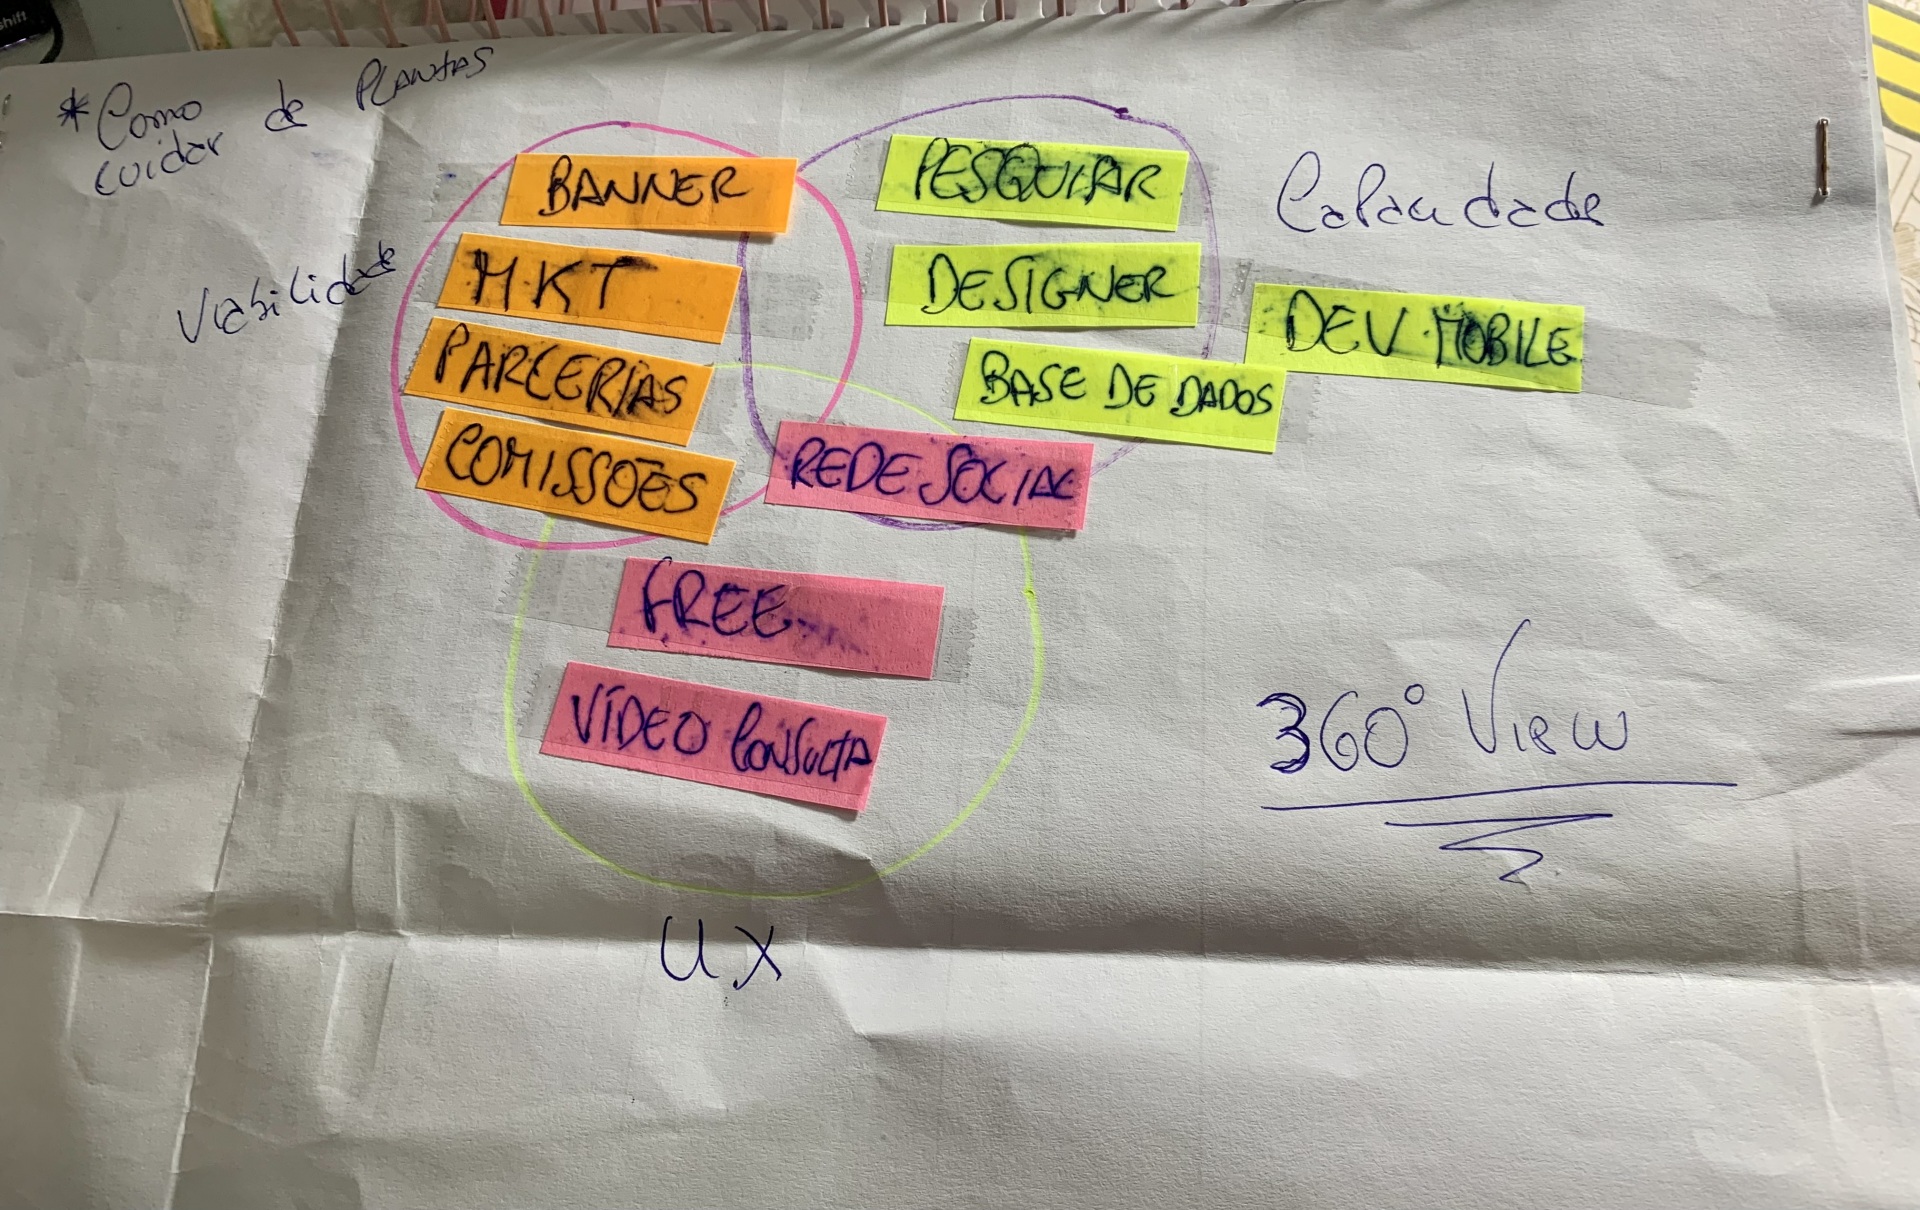 shift
* Como
cuidar de PLANTAS
Viabilidade
BANNER
MKT
PARCERIAS
COMISSÕES
PESQUISAR
DESIGNER
BASE DE DADOS
DEV MOBILE
Capacidade
REDE SOCIAL
FREE
VÍDEO CONSULTA
UX
360° View